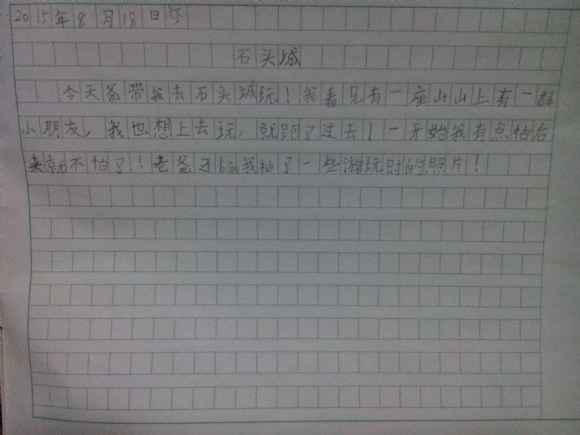 2015年8月18日
石头城
今天爸带我去石头城玩！我看见有一座山山上有一群
小朋友，我也想上去玩，就跑了过去！一开始我有点怕后
来就不怕了！老爸还bang我拍了一些游玩时的照片！